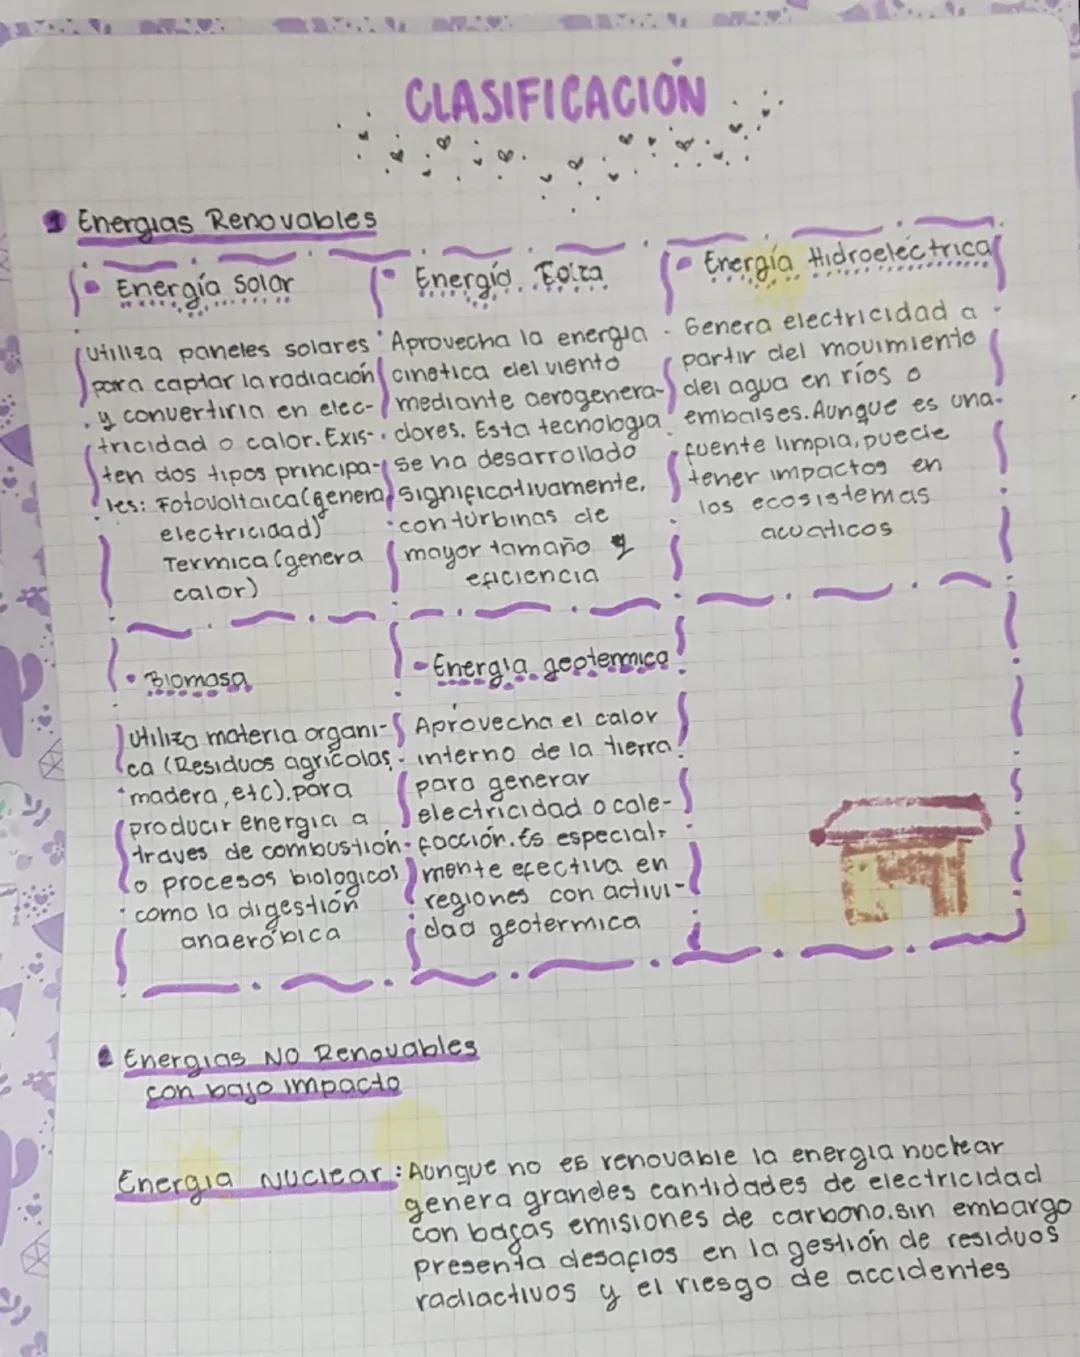 CLASIFICACIÓN
1 Energías Renovables
• Energía Solar
Utiliza paneles solares
para captar la radiación
y convertirla en elec-
tricidad o calor. Exis-
ten dos tipos principa-
les: Fotovoltaica (genera
electricidad)
Termica (genera
calor)
• Energía Eolica
Aprovecha la energia
cinetica del viento
mediante aerogenera-
dores. Esta tecnologia
se ha desarrollado
significativamente,
con turbinas de
mayor tamaño y
eficiencia
• Energía Hidroeléctrica
Genera electricidad a
partir del movimiento
del agua en ríos o
embalses. Aunque es una
fuente limpia, puede
tener impactos en
los ecosistemas
acuaticos
• Biomasa
Utiliza materia organi-
ca (Residuos agrícolas,
madera, etc). para
producir energia a
traves de combustión
o procesos biologicos
como la digestión
anaeróbica
• Energia geotermica
Aprovecha el calor
interno de la tierra
para generar
electricidad o cale-
facción. Es especial-
mente efectiva en
regiones con activi-
dad geotermica
2 Energias NO Renovables
con bajo impacto
Energia Nuclear: Aunque no es renovable la energia nuclear
genera grandes cantidades de electricidad
con bajas emisiones de carbono. sin embargo
presenta desafios en la gestión de residuos
radiactivos y el riesgo de accidentes